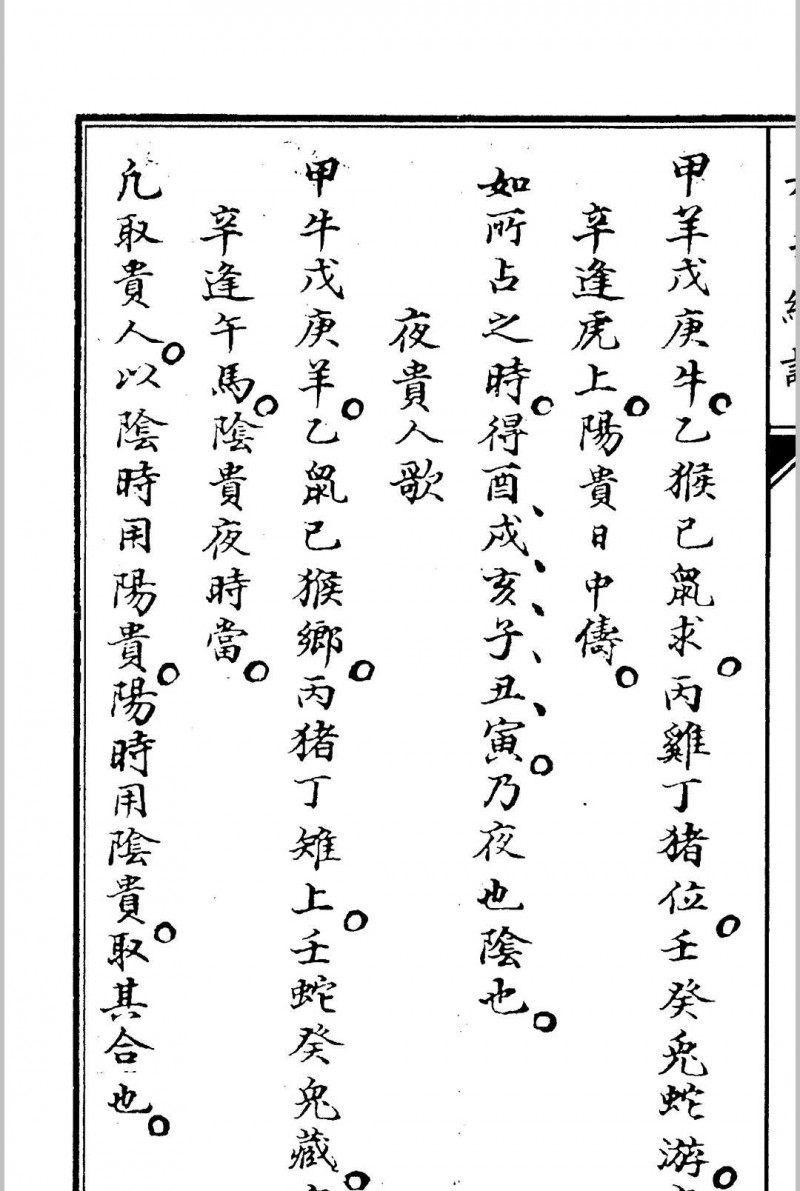 甲羊戊庚牛。乙猴己鼠求。丙雞丁猪位。壬癸兎蛇游。
辛逢虎上。陽貴日中儔。
如所占之時。得酉、戌、亥、子、丑、寅。乃夜也陰也。
夜貴人歌
甲牛戊庚羊。乙鼠己猴鄉。丙猪丁雉上。壬蛇癸兎藏。
辛逢午馬。陰貴夜時當。
凡取貴人。以陰時用陽貴。陽時用陰貴。取其合也。